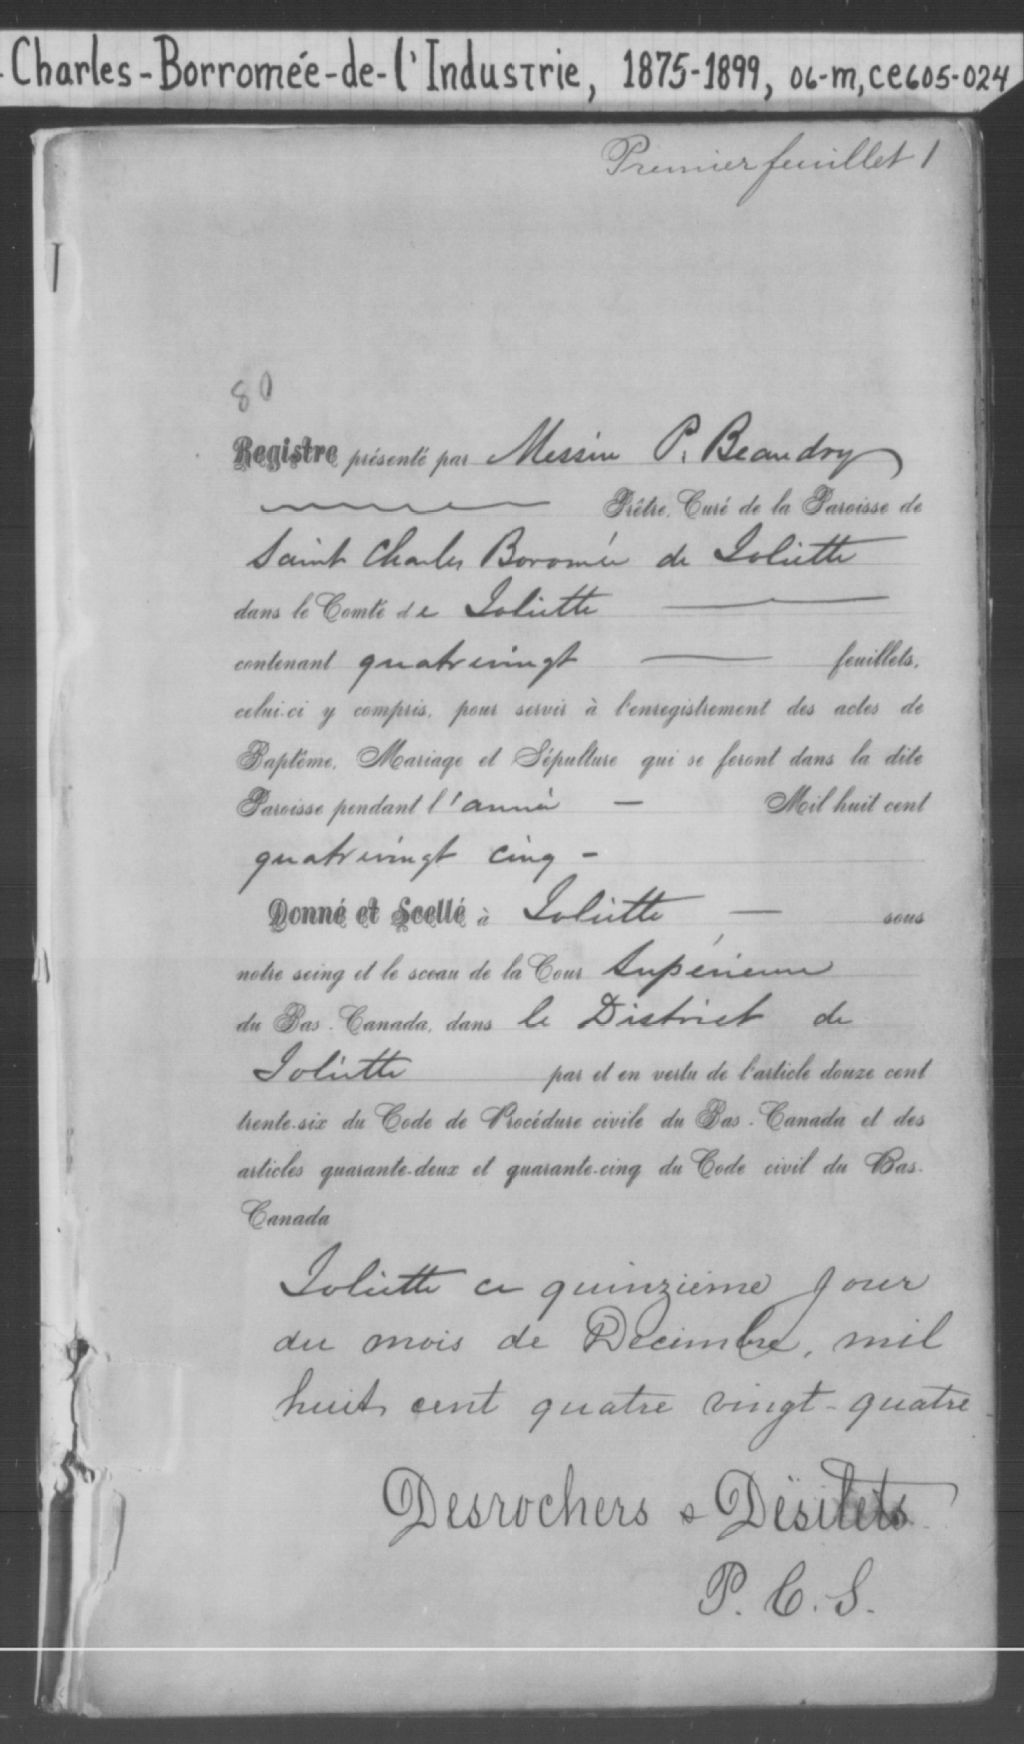 Charles-Borromée-de-l'Industrie, 1875-1899, 06-M, CE605-024
Premier feuillet 1
80
Registre présenté par Messire P. Beaudry
Prêtre, Curé de la Paroisse de
Saint Charles Boromée de Joliette
dans le Comté de Joliette
contenant quatrevingt feuillets,
celui-ci y compris, pour servir à l'enregistrement des actes de
Baptême, Mariage et Sépulture qui se feront dans la dite
Paroisse pendant l'année — Mil huit cent
quatrevingt cinq -
Donné et Scellé à Joliette — sous
notre seing et le sceau de la Cour Supérieure
du Bas-Canada, dans le District de
Joliette par et en vertu de l'article douze cent
trente-six du Code de Procédure civile du Bas-Canada et des
articles quarante-deux et quarante-cinq du Code civil du Bas-
Canada
Joliette ce quinzième jour
du mois de Décembre, mil
huit cent quatre vingt-quatre
Desrochers & Désilets
P. C. S.